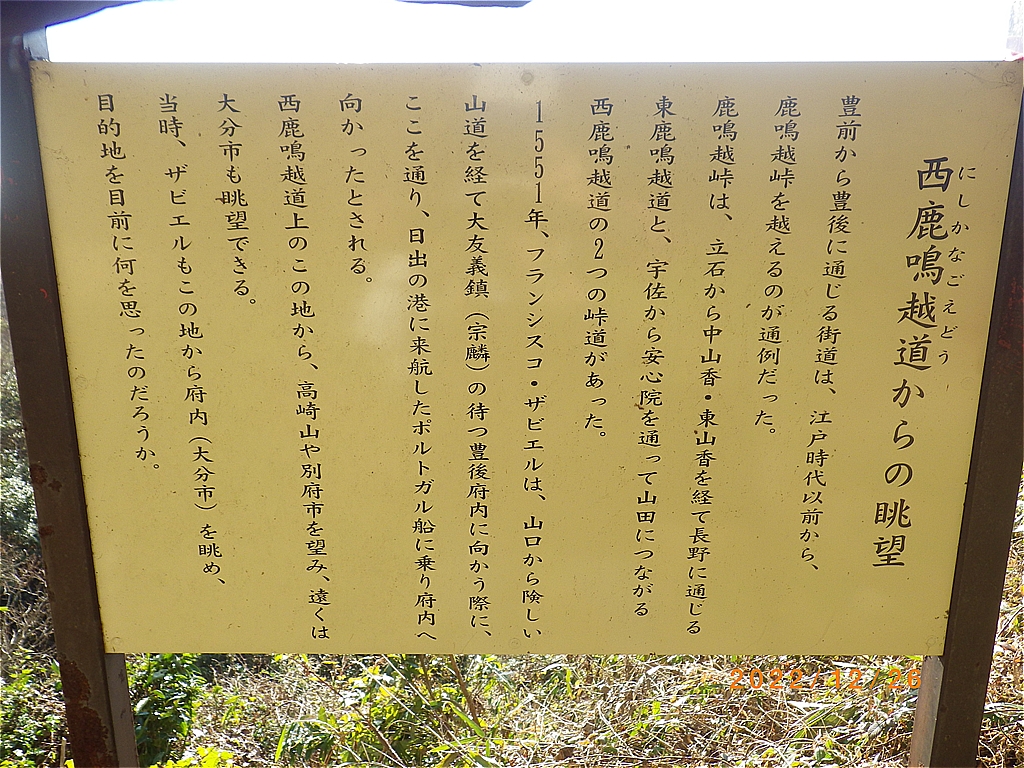 西鹿鳴越道からの眺望
にしかなごえどう
豊前から豊後に通じる街道は、江戸時代以前から、
鹿鳴越峠を越えるのが通例だった。
鹿鳴越峠は、立石から中山香・東山香を経て長野に通じる
東鹿鳴越道と、宇佐から安心院を通って山田につながる
西鹿鳴越道の2つの峠道があった。
1551年、フランシスコ・ザビエルは、山口から険しい
山道を経て大友義鎮（宗麟）の待つ豊後府内に向かう際に、
ここを通り、日出の港に来航したポルトガル船に乗り府内へ
向かったとされる。
西鹿鳴越道上のこの地から、高崎山や別府市を望み、遠くは
大分市も眺望できる。
当時、ザビエルもこの地から府内（大分市）を眺め、
目的地を目前に何を思ったのだろうか。
2022/12/26